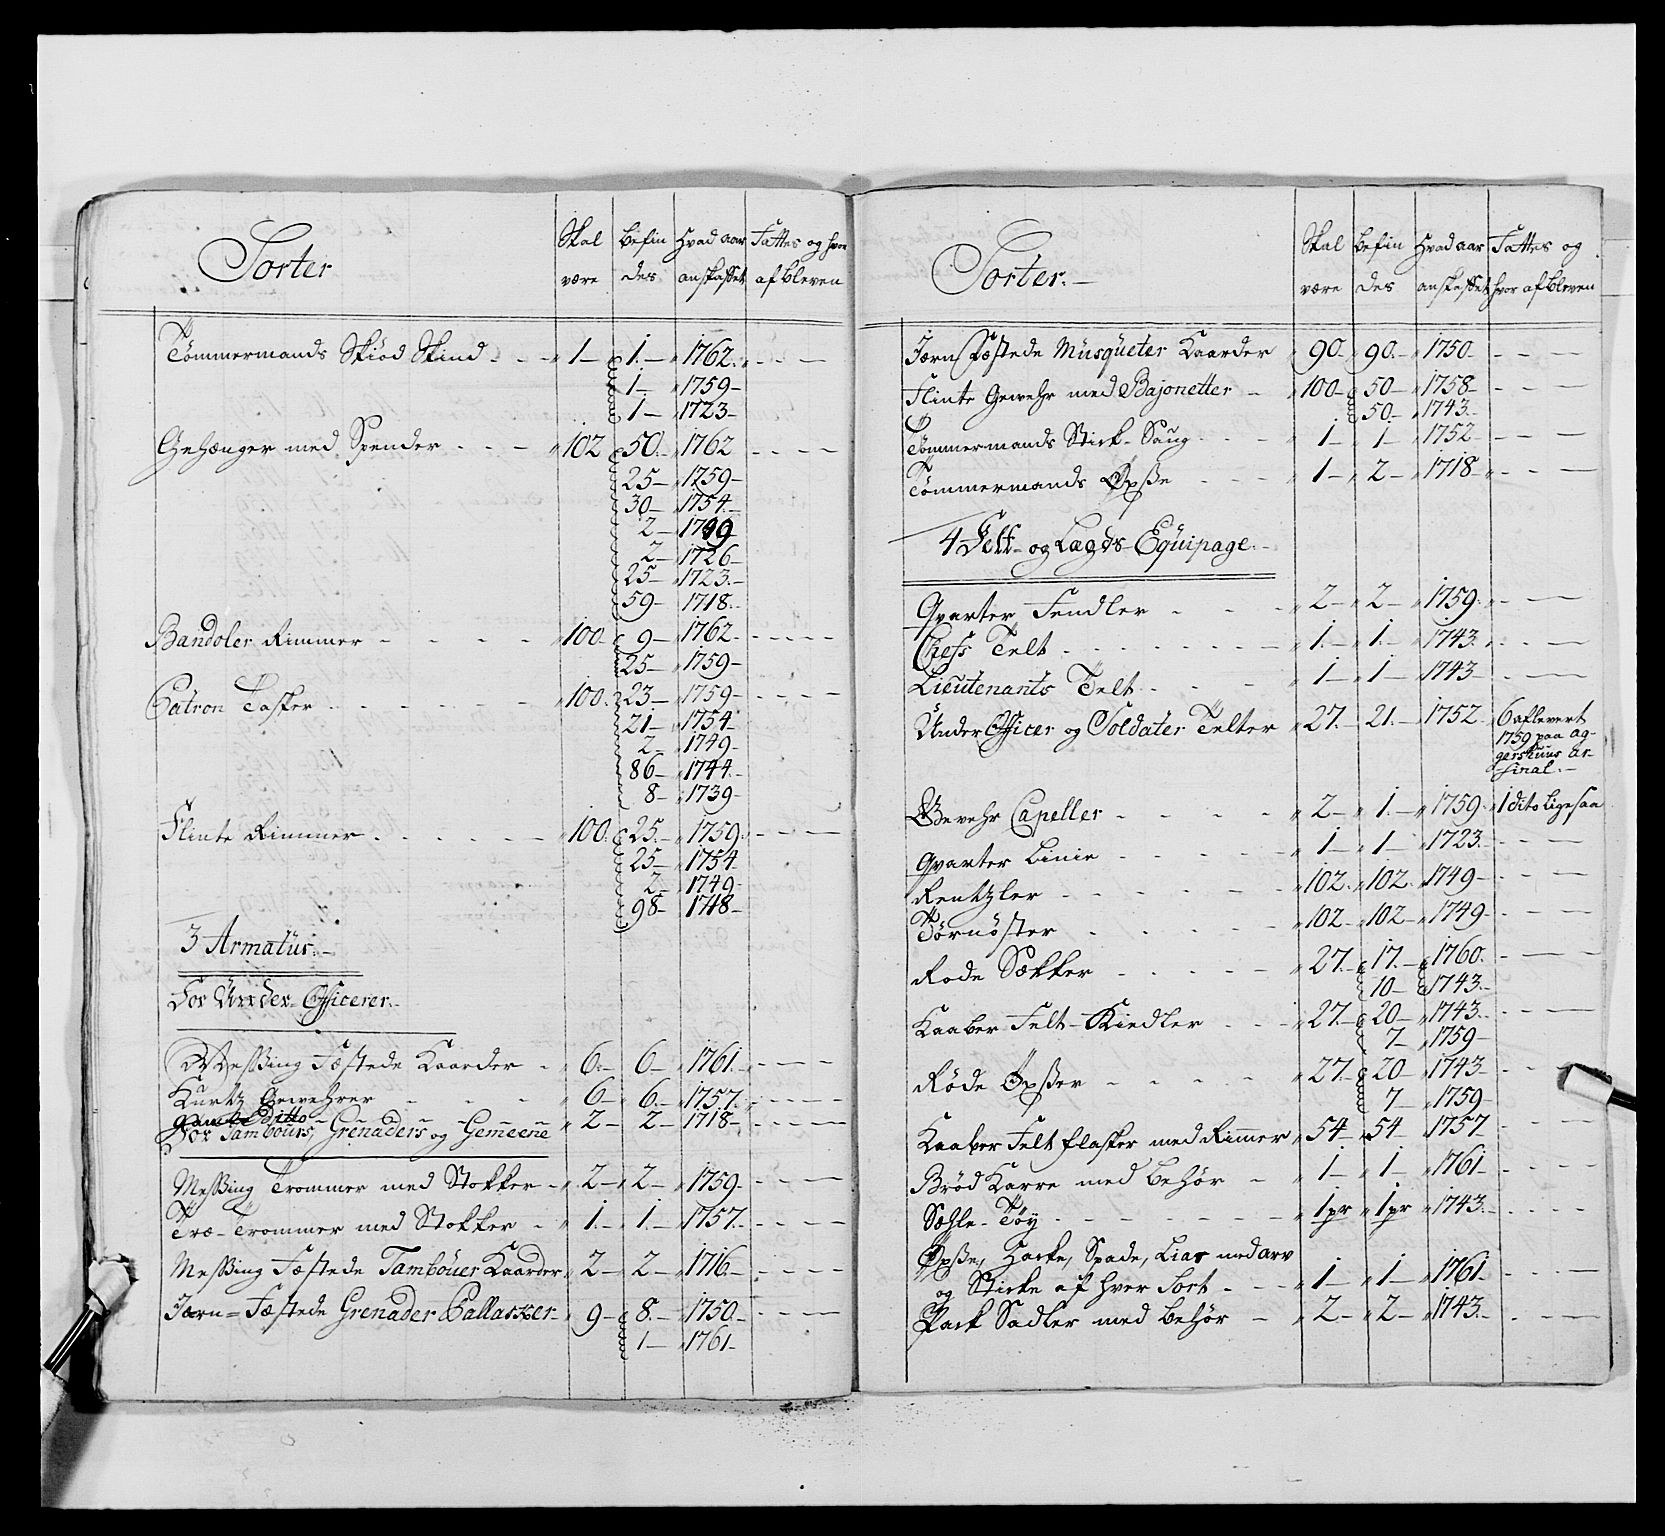 Sorter
Skal være
Befindes
Hvad aar anskaffet
Fattes og hvor afbleven
Tømmermands Skiød Skind - - - 1 - 1 - 1762 - - -
1 - 1759 -
1 - 1723 -
Gehænger med Spender - - - 102 50 - 1762 - - - -
25 - 1759 -
30 - 1754 -
2 - 1749
2 - 1726 -
25 - 1723 -
59 - 1718 -
Bandoler Rimmer - - - - 100 9 - 1762 - - - -
25 - 1759 -
Patron Tasker - - - - - 100 23 - 1759 - - - -
21 - 1754 -
2 - 1749 -
86 - 1744 -
8 - 1739 -
Flinte Rimmer - - - - - 100 25 - 1759 - - - -
25 - 1754
2 - 1749 -
98 - 1718 -
3 Armatür. -
For Under Officerer. -
Messing Fæstede Kaarder - 6 - 6 - 1761 - - - -
Kürtz Gewehrer - - - 6 - 6 - 1757 - - - -
gamle Ditto - 2 - 2 - 1718 - - - -
For Tambours, Grenaders og Gemeene
Messing Trommer med Stokker - 2 - 2 - 1759 - - - -
Træ-Trommer med Stokker - 1 - 1 - 1757 - - - -
Messing Fæstede Tambouer Kaarder 2 - 2 - 1716 - - - -
Jærn = Fæstede Grenader Pallasker - 9 - 8 - 1750 - - - -
1 - 1761 -
Sorter. -
Skal være
Befindes
Hvad aar anskaffet
Fattes og hvor afbleven
Jærn Fæstede Müsqueter Kaarder 90 - 90 - 1750 - - - -
Flinte Gewehr med Bajonetter - 100 - 50 - 1758 - - - -
50 - 1743 -
Tømmermands Stick-Saug - - - 1 - 1 - 1752 - - - -
Tømmermands Øxße - - - 1 - 2 - 1718 - - - -
4 Felt- og Lægds-Equipage. -
Qvarter Fendler - - - 2 - 2 - 1759 - - -
Chefs Telt - - - - - - 1 - 1 - 1743 - - -
Lieutenants Telt - - - 1 - 1 - 1743 - - -
Under Officer og Soldater Telter 27 - 21 - 1752 6 aflevert
1759 paa Ag-
gershuus Ar-
sinal. -
Gevehr Capeller - - - - 2 - 1 - 1759 - 1 dito ligesaa
Qvarter Linie - - - - - 1 - 1 - 1723 - - -
Rentzler - - - - - 102 - 102 - 1749 - - - -
Tørnøster - - - - 102 - 102 - 1749 - - - -
Rode Sækker - - - - - 27 - 17 - 1760 - - - -
10 - 1743 -
Kaaber Felt-Kiedler - - - 27 - 20 - 1743 - - - -
7 - 1759 -
Røde Øxßer - - - - - 27 - 20 - 1743 - - - -
7 - 1759 -
Kaaber Felt flasker med Rimmer 54 - 54 - 1757 - - - -
Brød Karre med Behør - 1 - 1 - 1761 - - - -
Sæhle-Tøy - - - - - - 1 pr 1 pr 1743 - - - -
Øxße, Hacke, Spade, Liar med orv
og Stikke af hver Sort - - - 1 - 1 - 1761 - - -
Pack Sadler med Behør - 2 - 2 - 1743 - - - -